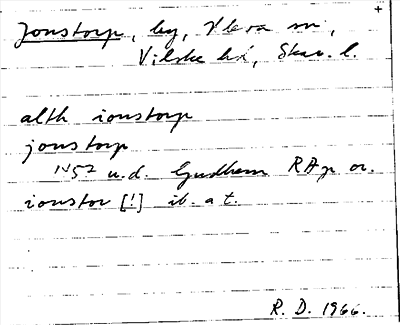 +
Jonstorp, by, Vårva sn,
Vilske hd, Skar. l.
alth ionstorp
jonstorp
1452 u.d. Gudhem RAp or.
ionstor [!] ib. a t.
R. D. 1966.